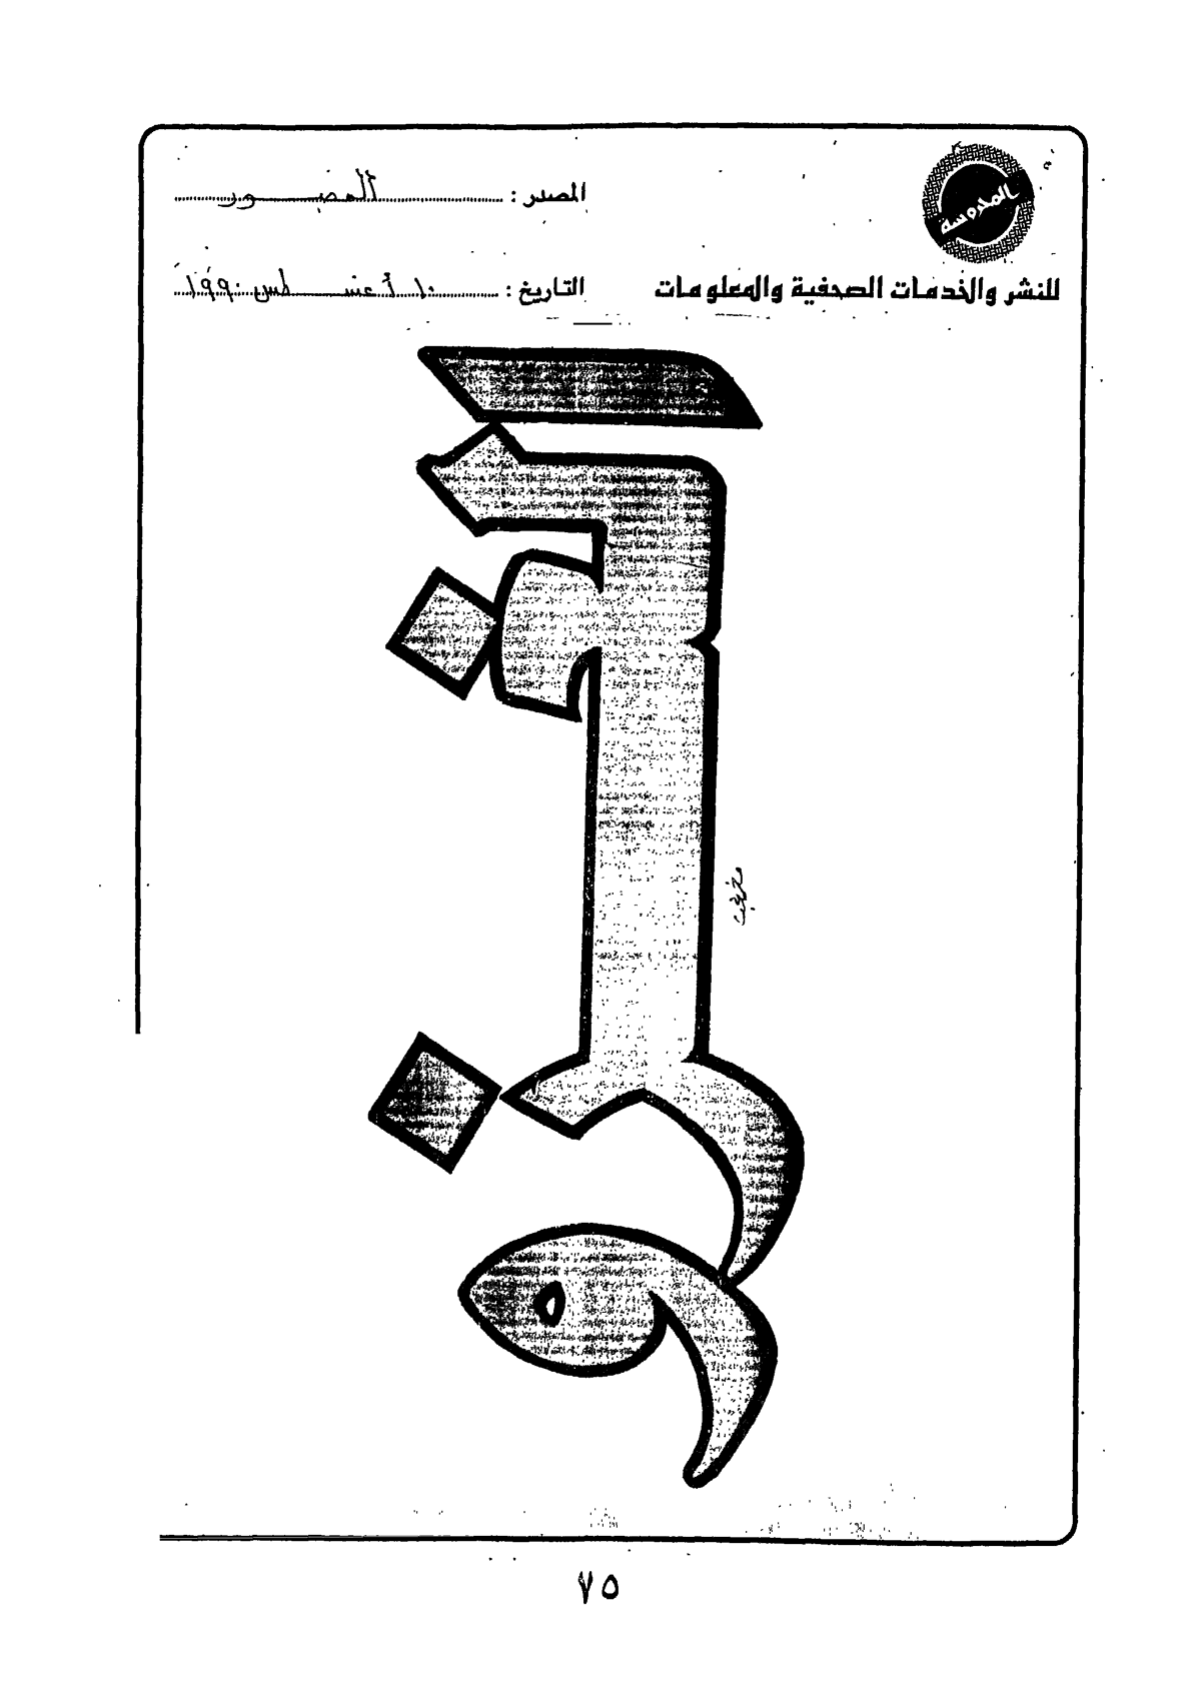 المحروسة
المصدر : المصور
للنشر والخدمات الصحفية والمعلومات
التاريخ : ١٠ أغسطس ١٩٩٠
الغزو
٧٥